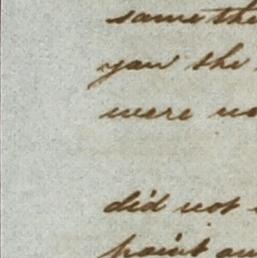 same the
you she
were no
did not
point an